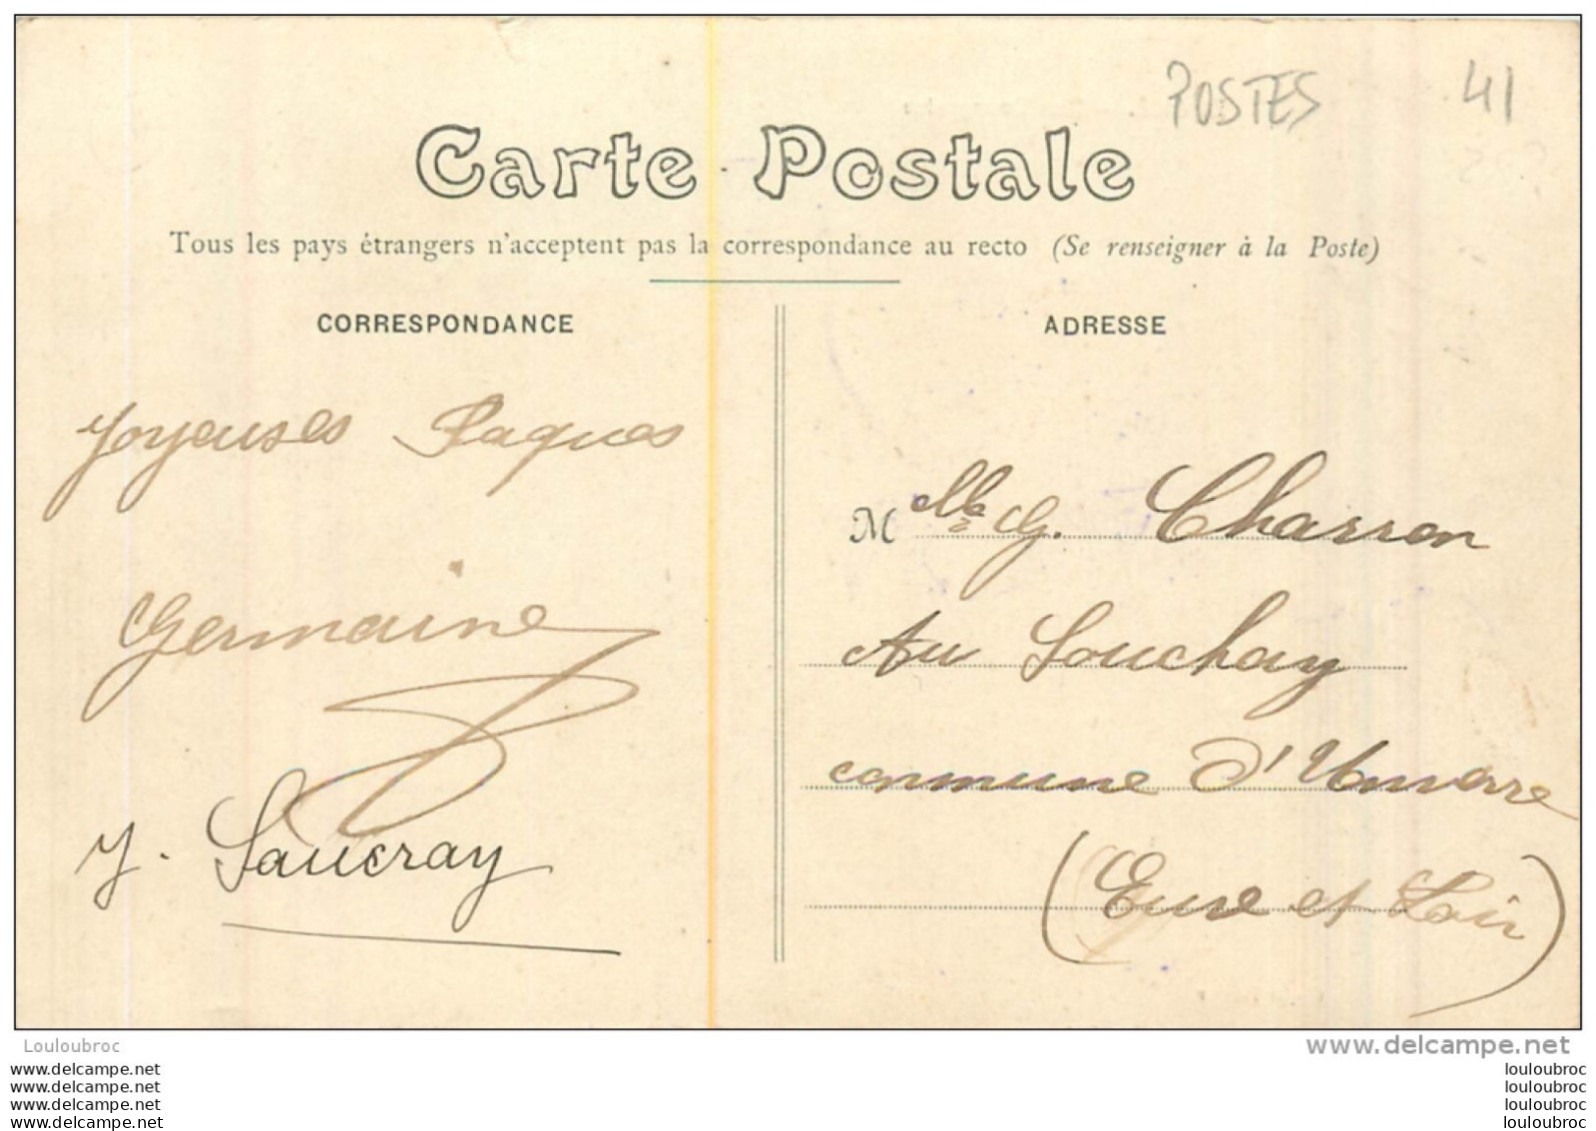 POSTES 41
Carte Postale
Tous les pays étrangers n'acceptent pas la correspondance au recto (Se renseigner à la Poste)
CORRESPONDANCE
Joyeuses Paques
Germaine
Y. Saucray
ADRESSE
Melle G. Charron
Au Souchay
commune d'Unverre
(Eure et Loir)
Louloubroc
www.delcampe.net
www.delcampe.net
www.delcampe.net
www.delcampe.net
www.delcampe.net
louloubroc
louloubroc
louloubroc
louloubroc